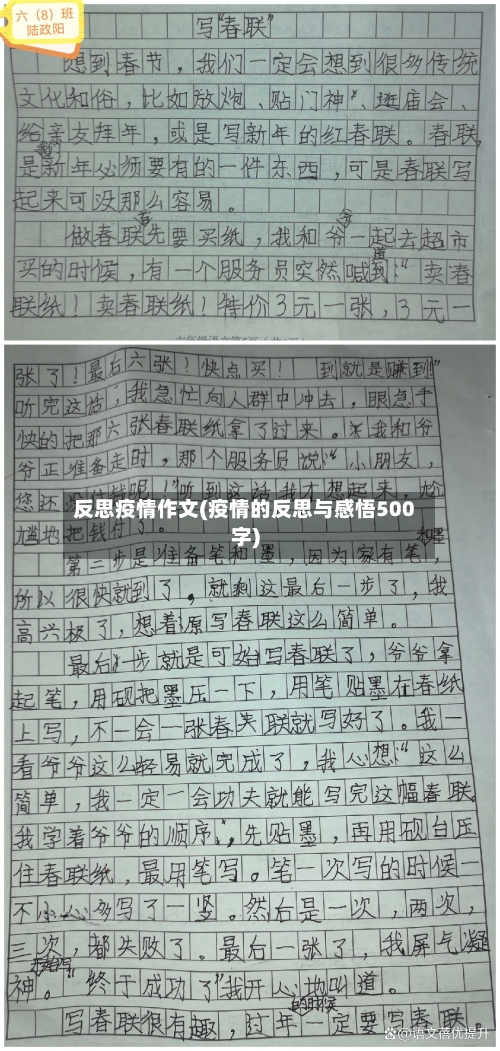 六（8）班
陆政阳
写"春联"
想到春节，我们一定会想到很多传统
文化和俗，比如放炮、贴门神、逛庙会、
给亲友拜年，或是写新年的红春联。春联，
是新年必须要有的一件东西，可是春联写
起来可没那么容易。
做春联先要买纸，我和爷一起去超市
买的时候，有一个服务员突然喊到："卖春
联纸！卖春联纸！特价3元一张，3元一
张了！最后六张！快点买！ 到就是赚到"
听完这话，我急忙向人群中冲去，眼急手
快的把那六张春联纸拿了过来。我和爷
爷正准备走时，那个服务员说："小朋友，
您还没付钱呢！"听到这话我才想起来，尬
尴地把钱付了。
反思疫情作文(疫情的反思与感悟500
字)
第二步是准备笔和墨，因为家有笔，
所以很快就到了，就剩这最后一步了，我
高兴极了，想着原写春联这么简单。
最后一步就是可始写春联了，爷爷拿
起笔，用砚把墨压一下，用笔贴墨在春纸
上写，不一会一张春联就写好了。我一
看爷爷这么轻易就完成了，我心想："这么
简单，我一定一会功夫就能写完这幅春联。
我学着爷爷的顺序，先贴墨，再用砚台压
住春联纸，最用笔写。笔一次写的时候一
不小心多写了一竖。然后是一次，两次，
三次，都失败了。最后一张了，我屏气凝
神。"终于成功了"我开心地叫道。
的时候
写春联很有趣，过年一定要写春联。
@语文蓓优提升